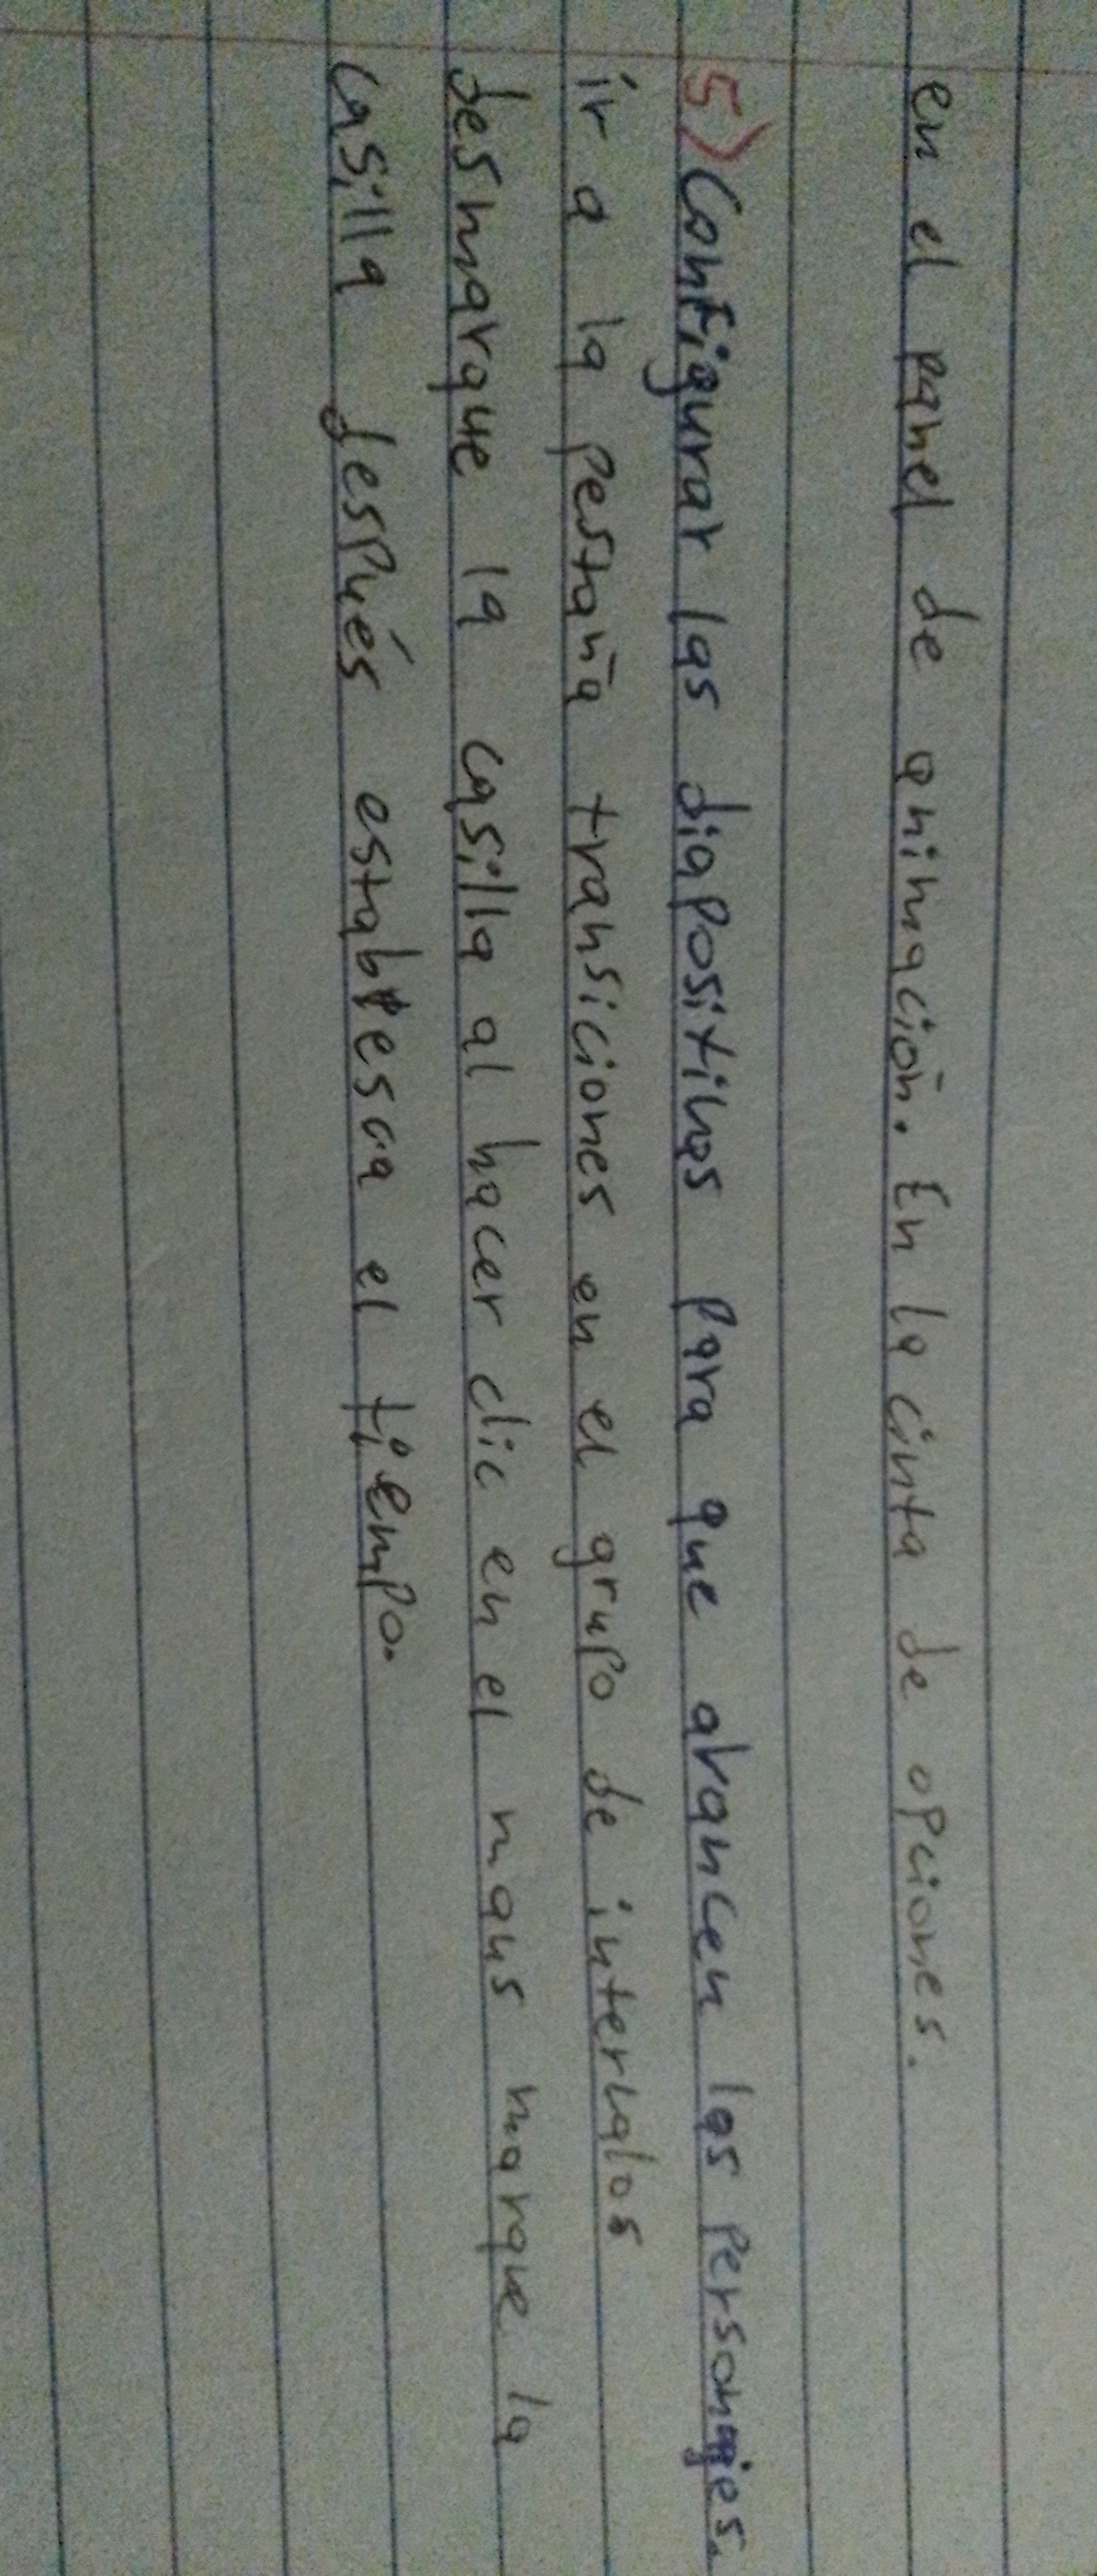 en el panel de animación. En la cinta de opciones.
5) Configurar las diapositivas para que avancen las personajes.
ir a la pestaña transiciones en el grupo de intervalos
desmarque la casilla al hacer clic en el maus marque la
casilla después establesca el tiempo.